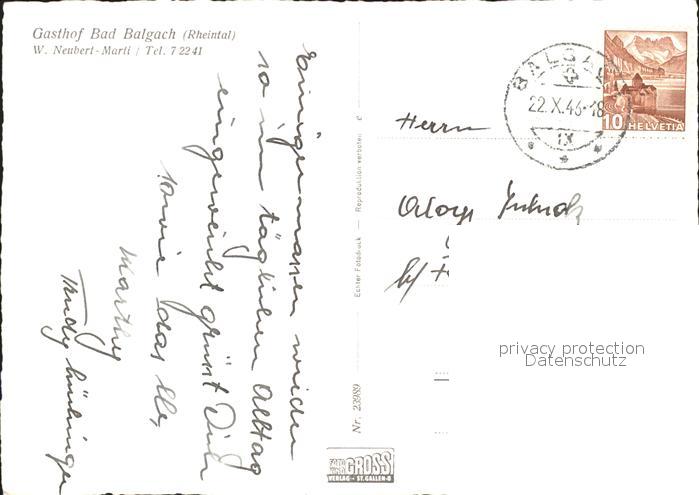 Gasthof Bad Balgach (Rheintal)
W. Neubert-Marti / Tel. 7 22 41
Einigermassen wieder
so im täglichen Alltag
eingereiht grüsst Dich
sowie das
Marthy
Trudy
Echter Fotodruck — Reproduktion verboten
Nr. 23989
GROSS
VERLAG - ST. GALLEN
BALGACH
22.X.46-18
IX
10 HELVETIA
Herrn
privacy protection
Datenschutz